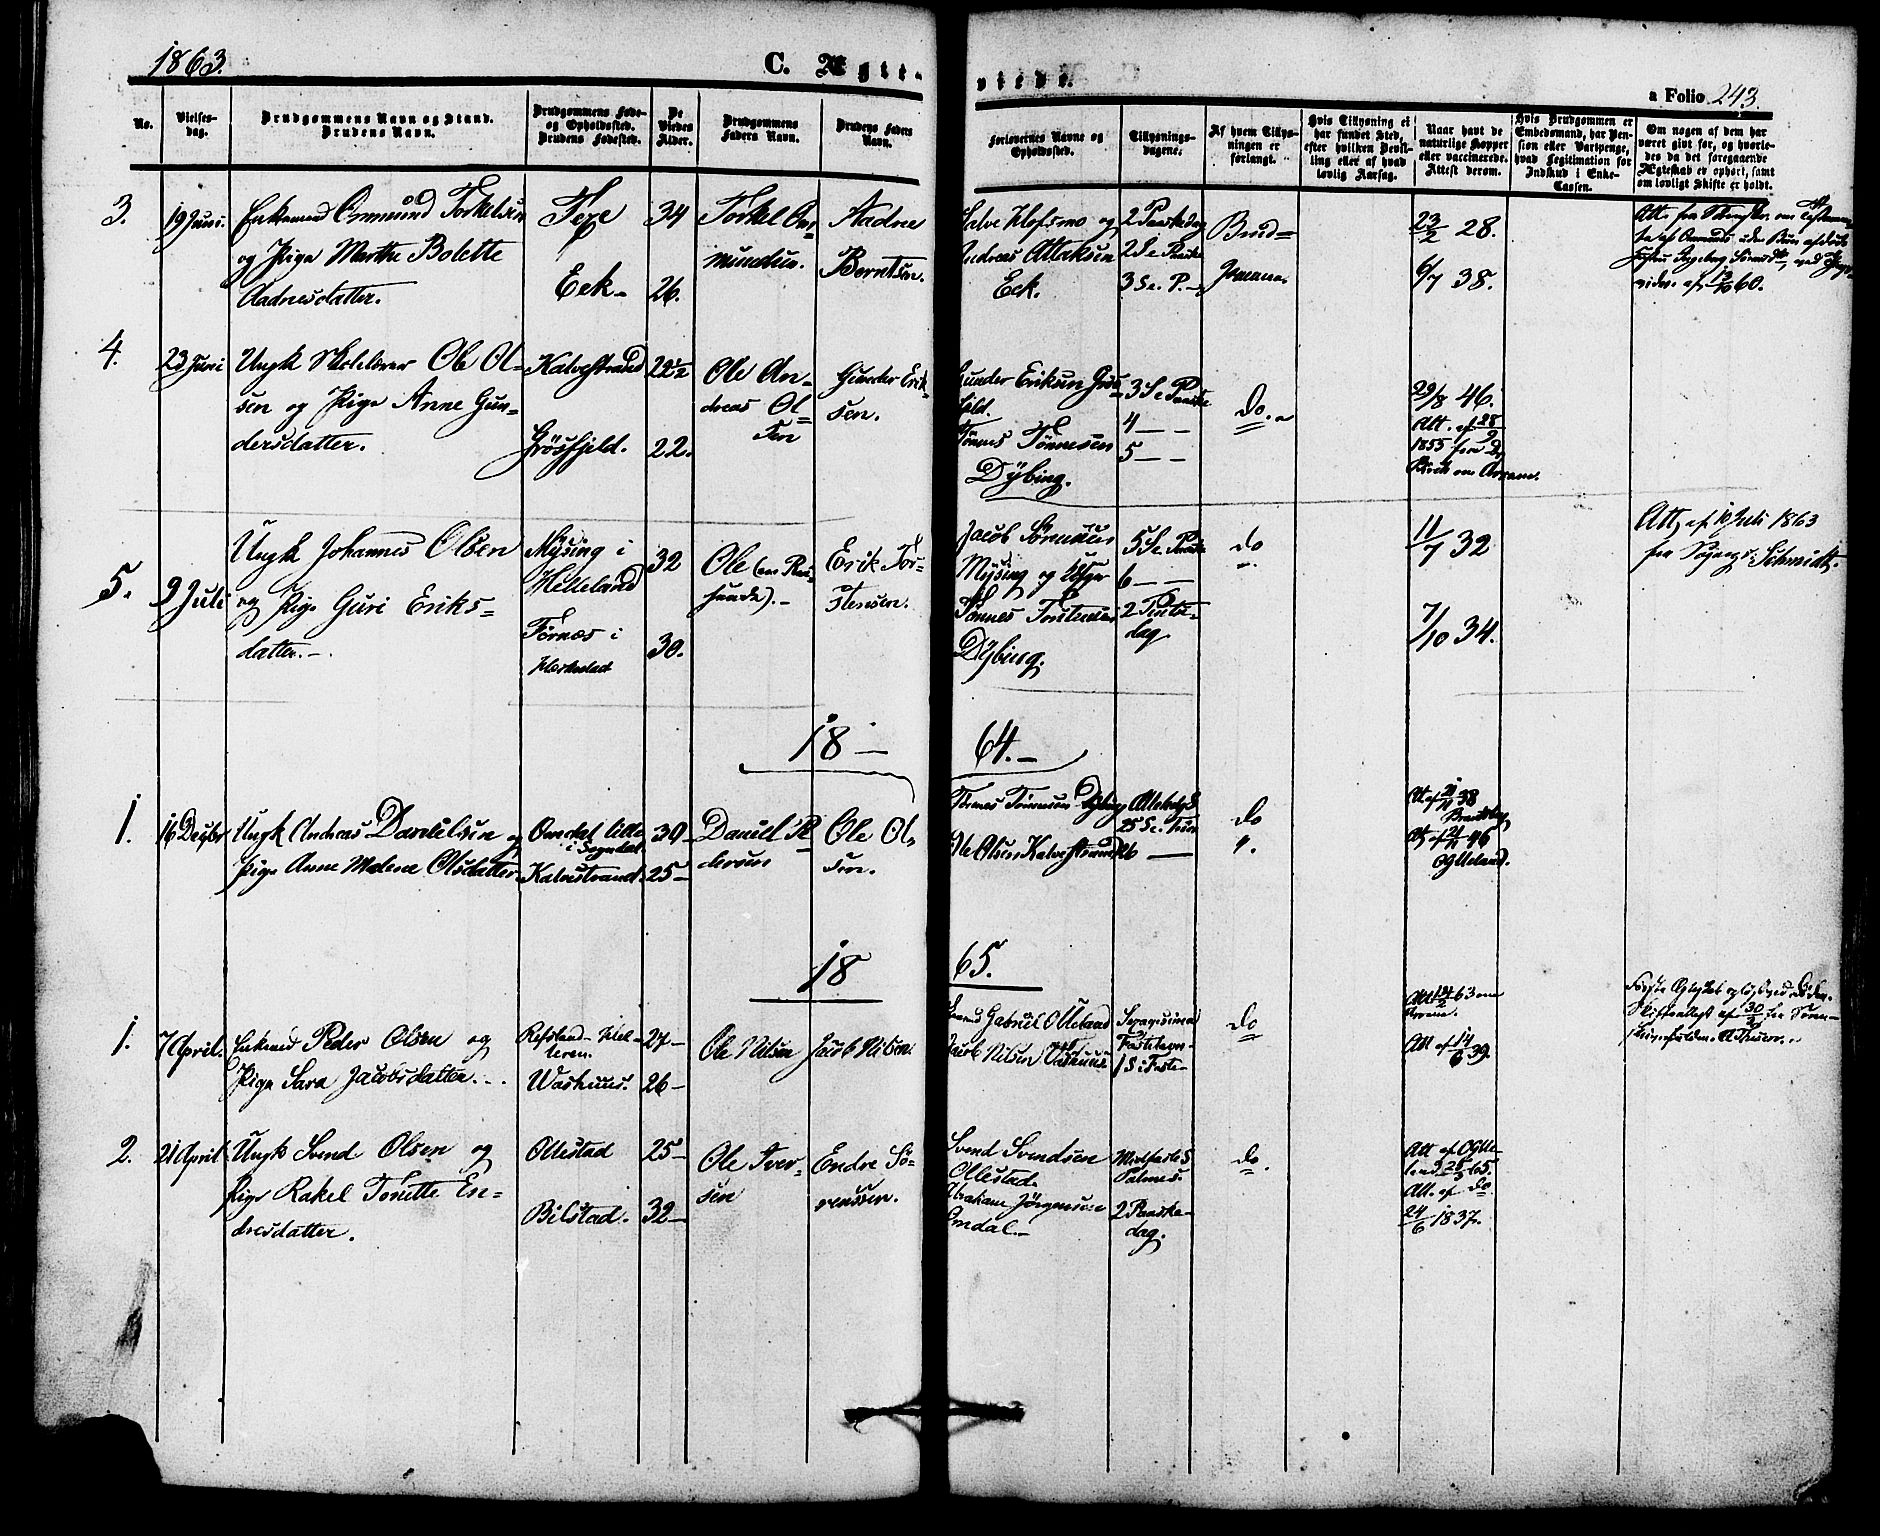 1863.
C. Ægte-
viede.
a Folio 243.
No.
Vielses-
dag.
Brudgommens Navn og Stand.
Brudens Navn.
Brudgommens Føde-
og Opholdssted.
Brudens Fødested.
De
Viedes
Alder.
Brudgommens
Faders Navn.
Brudens Faders
Navn.
Forlovernes Navne og
Opholdssted.
Tillysnings-
dagene.
Af hvem Tillys-
ningen er
forlangt.
Hvis Tillysning ei
har fundet Sted,
efter hvilken Bevil-
ling eller af hvad
lovlig Aarsag.
Naar havt de
naturlige Kopper
eller vaccinerede.
Attest derom.
Hvis Brudgommen er
Embedsmand, har Pen-
sion eller Vartpenge,
hvad Legitimation for
Indskud i Enke-
Cassen.
Om nogen af dem har
været givt før, og hvorle-
des da det foregaaende
Ægteskab er ophørt, samt
om lovligt Skifte er holdt.
3.
19 Juni.
Enkemand Ommund Torkelsen
og Pige Marthe Bolette
Aadnesdatter.
Eek
34
26.
Torkel Om-
mundsen.
Aadne
Berntsen.
Andreas Attaksen
Eek.
2 Paaskedag
2 S. e. Paaske
3 S. e. P.
Brud=
gommen.
23/2 28.
6/7 38.
4.
23 Juni
Ungk Skolelærer Ole Ol-
sen og Pige Anne Gun-
dersdatter.
Kalvestrand
Grøsfjeld.
22½
22.
Ole An-
dreas Ol-
sen
Gunder Erik-
sen.
Gunder Eriksen Grøs-
fjeld.
Tønnes Tønnesen
Dybing.
3 S. e. Paaske
4 — —
5 — —
Do.
29/8 46.
Att. af 28/9
1855 fra
5.
9 Juli
Ungk Johannes Olsen
og Pige Guri Eriks-
datter.
Mysing i
Helleland
Førnæs i
32
30.
Ole
Erik Tor-
stensen.
Jacob
Mysing og
Tønnes Torstensen
Dybing.
5 S. e. Paaske
6 — —
2 Pintse-
dag
do
11/7 32
7/10 34.
Att. af 10 Juli 1863
fra Sognepr. Schmidt.
18—64.—
1.
16 Decbr
Ungk Andreas Danielsen og
Pige Anne Malene Olsdatter
Omdal lille
i Sogndal
Kalvestrand.
30
25
Daniel P
dersen
Ole Ol-
sen.
Tønnes Tønnesen Dybing
Ole Olsen Kalvestrand
26 —
do
".
18 65.
1.
7 April.
Enkemd Peder Olsen og
Pige Sara Jacobsdatter.
Washuus.
27
26
Ole Nilsen
Jacob Nilsen.
Gabriel Olleland
Jacob Nilsen Vashuus.
Septuagesima
Fastelavn
1 S. i Faste
do
Att af 14/6 39.
2.
21 April.
Ungk Svend Olsen og
Pige Rakel Tonette En-
dresdatter.
Ollestad
Bilstad.
25
32
Ole Iver-
sen
Endre Sø-
rensen.
Svend Svendsen
Ollestad.
Abraham Jörgensen
Omdal.
Midfaste S
Palmes.
2 Paaske-
dag.
do.
Att af
Att. af do
24/6 1837.